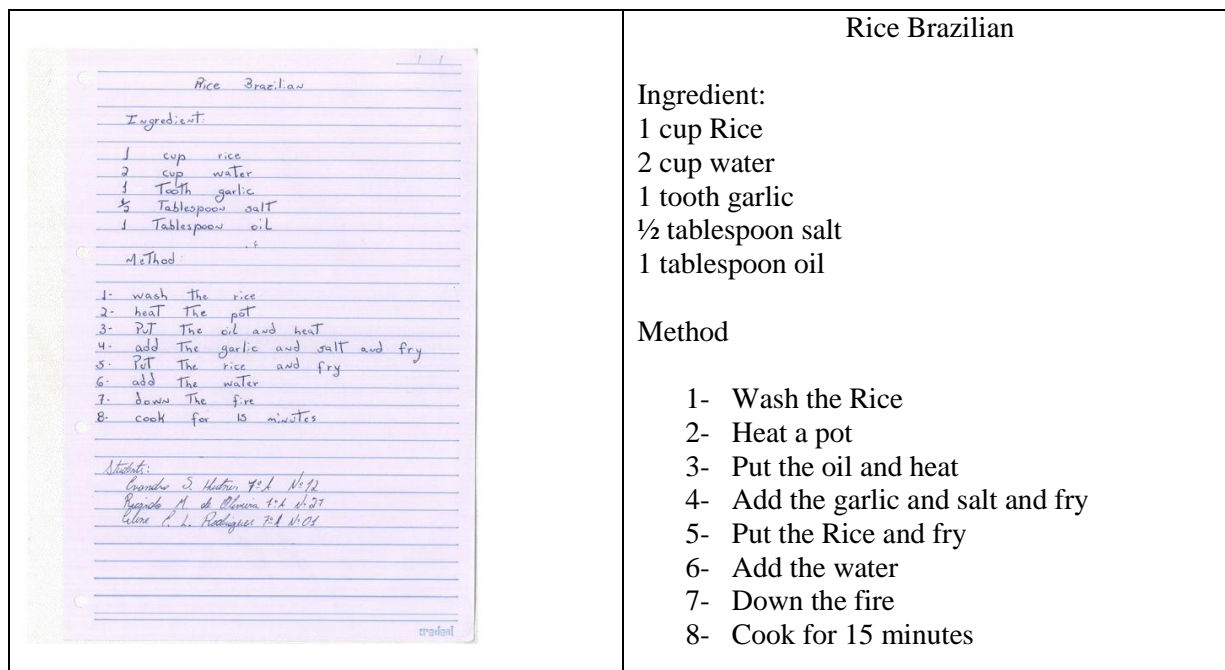 Rice Brazilian
Ingredient:
1 cup rice
2 cup water
1 Tooth garlic
½ Tablespoon salt
1 Tablespoon oil
Method:
1- wash The rice
2- heat The pot
3- PuT The oil and heaT
4- add The garlic and salt and fry
5- PuT The rice and fry
6- add The waTer
7- down The fire
8- cook for 15 minuTes
Students:
S. 7º A Nº 12
M. de Oliveira 7º A Nº 27
L. Rodrigues 7º A Nº 01
credeal
Rice Brazilian
Ingredient:
1 cup Rice
2 cup water
1 tooth garlic
½ tablespoon salt
1 tablespoon oil
Method
1- Wash the Rice
2- Heat a pot
3- Put the oil and heat
4- Add the garlic and salt and fry
5- Put the Rice and fry
6- Add the water
7- Down the fire
8- Cook for 15 minutes